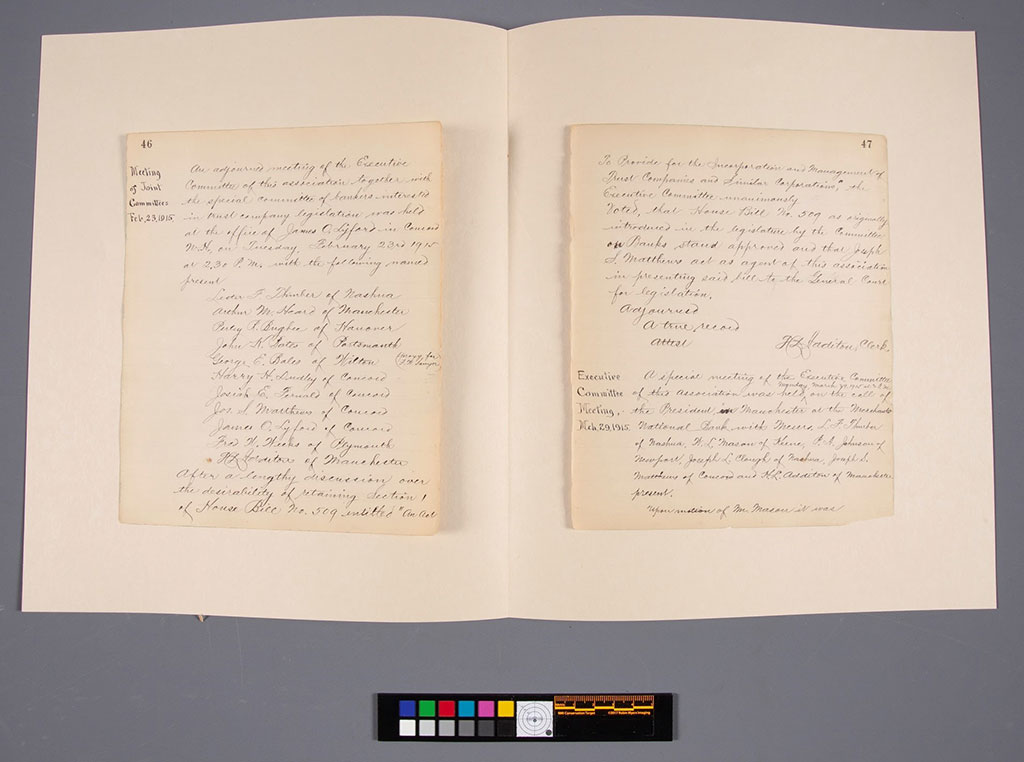 46
Meeting
of Joint
Committees
Feb. 23, 1915
An adjourned meeting of the Executive
Committee of this association together with
the special committee of bankers interested
in trust company legislation was held
at the office of James O. Lyford in Concord
N.H. on Tuesday, February 23rd 1915
at 2.30 P.M. with the following named
present
Lester F. Thurber of Nashua
Arthur M. Heard of Manchester
Percy R. Bugbee of Hanover
John K. Bates of Portsmouth
George E. Bales of Wilton
Harry H. Dudley of Concord
Josiah E. Fernald of Concord
Jos. S. Matthews of Concord
James O. Lyford of Concord
Fred W. Weeks of Plymouth
H L Additon of Manchester
After a lengthy discussion over
the desirability of retaining Section 1
of House Bill No. 509 entitled "An Act
47
To Provide for the Incorporation and Management of
Trust Companies and Similar Corporations," the
Executive Committee unanimously
Voted, that House Bill No. 509 as originally
introduced in the legislature by the Committee
on Banks stand approved and that Joseph
S. Matthews act as agent of this association
in presenting said bill to the General Court
for legislation.
Adjourned
A true record
Attest
H L Additon, Clerk.
Executive
Committee
Meeting,
Mch. 29, 1915.
A special meeting of the Executive Committee
of this association was held, on the call of
the President in Manchester at the Merchants
National Bank with Messrs. L F Thurber
of Nashua W. L. Mason of Keene, Johnson of
Newport, Joseph L. Clough of Nashua, Joseph S.
Matthews of Concord and H. L. Additon of Manchester
present.
Upon motion of Mr. Mason it was